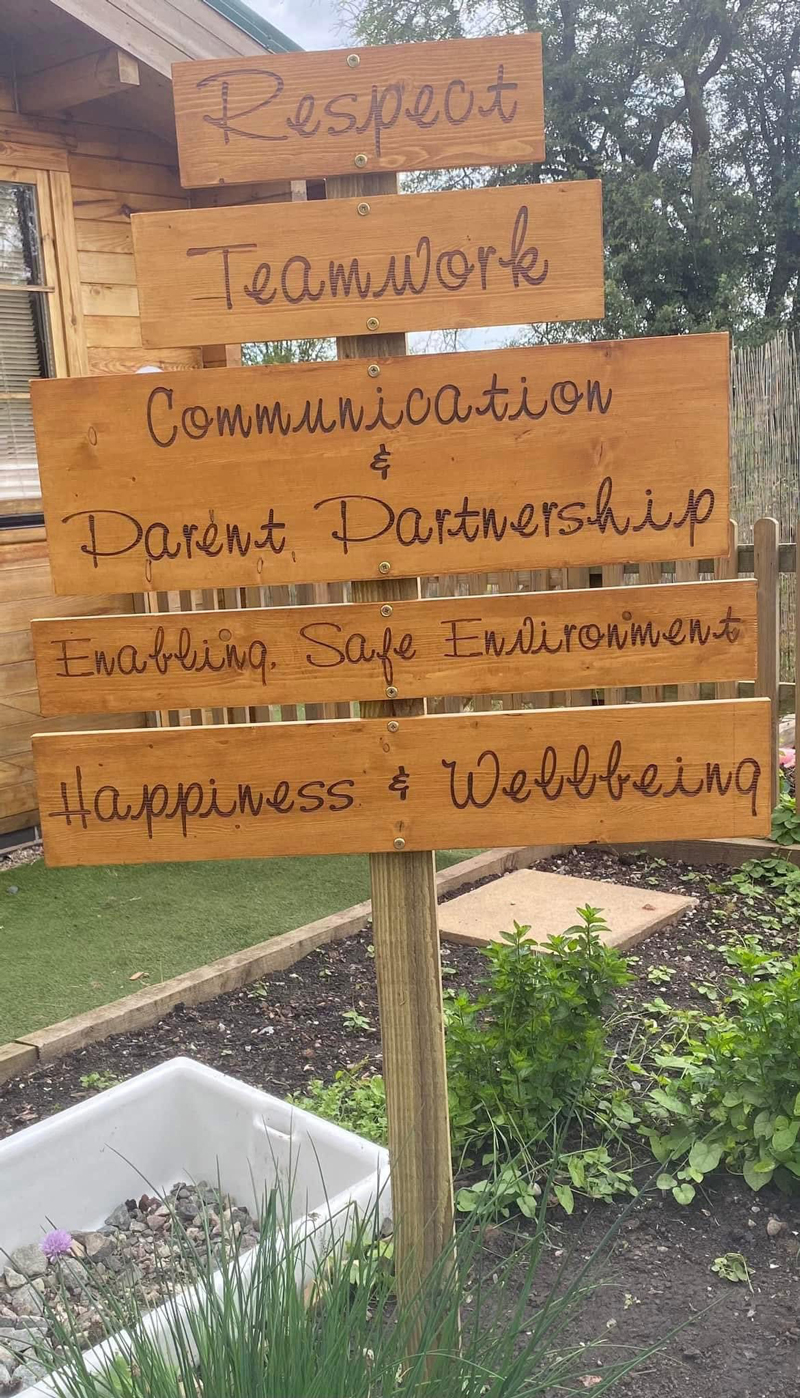 Respect
Teamwork
Communication
&
Parent Partnership
Enabling, Safe Environment
Happiness & Wellbeing